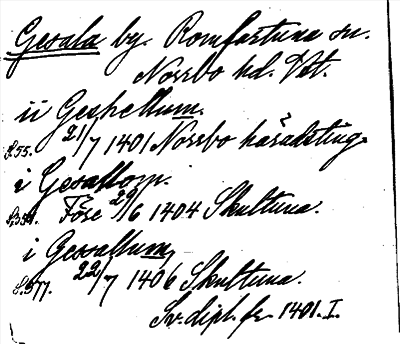 Gesala by. Romfartuna sn.
Norrbo hd. Vst.
ii Geshellum.
S.55. 21/7 1401 Norrbo häradsting.
i Gesallom.
Före 29/6 1404 Skultuna.
i Gesallum,
S.577. 22/7 1406 Skultuna.
Sv. dipl. fr. 1401. I.